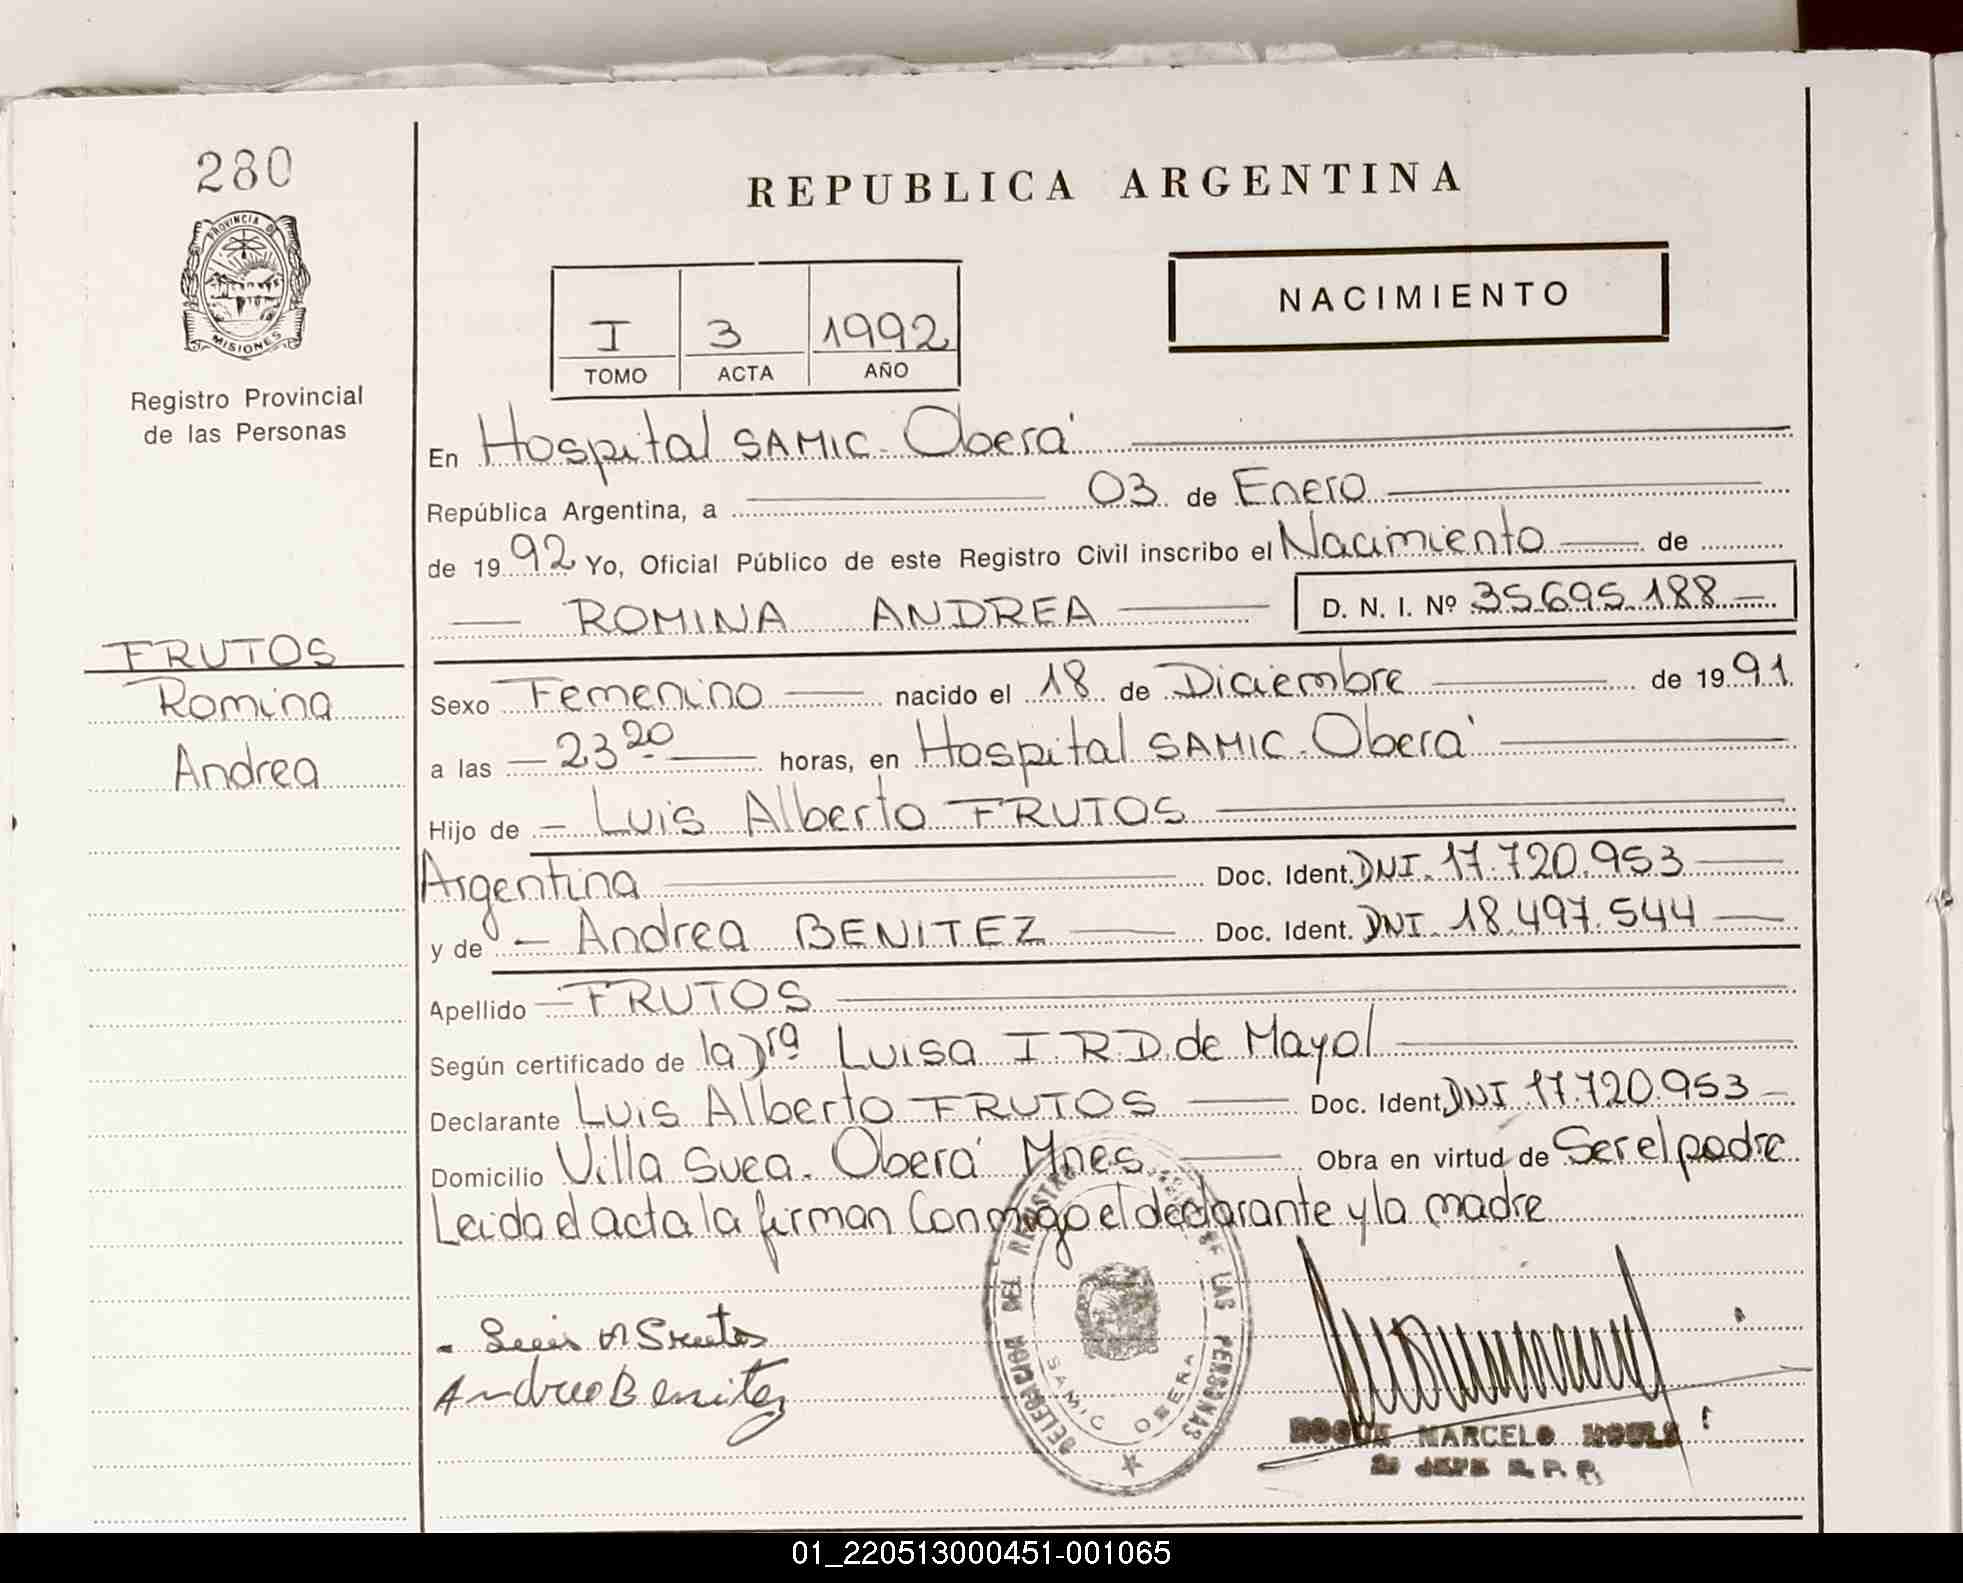 280
PROVINCIA DE
MISIONES
Registro Provincial
de las Personas
FRUTOS
Romina
Andrea
REPUBLICA ARGENTINA
I 3 1992
TOMO ACTA AÑO
NACIMIENTO
En Hospital SAMIC. Oberá
República Argentina, a 03 de Enero
de 1992 Yo, Oficial Público de este Registro Civil inscribo el Nacimiento de
ROMINA ANDREA D. N. I. Nº 35.695.188
Sexo Femenino nacido el 18 de Diciembre de 1991.
a las 23 20 horas, en Hospital SAMIC. Oberá
Hijo de Luis Alberto FRUTOS
Argentina Doc. Ident. DNI. 17.720.953
y de Andrea BENITEZ Doc. Ident. DNI. 18.497.544
Apellido FRUTOS
Según certificado de la Dra Luisa I. R. D. de Mayol
Declarante Luis Alberto FRUTOS Doc. Ident. DNI 17.720.953
Domicilio Villa Svea. Oberá Mnes. Obra en virtud de Ser el padre
Leida el acta la firman Conmigo el declarante y la madre
DELEGACION DEL REGISTRO DE LAS PERSONAS
SAMIC OBERA
Luis A Frutos
Andrea Benitez
ROQUE MARCELO
JEFE R. P. P.
01_220513000451-001065